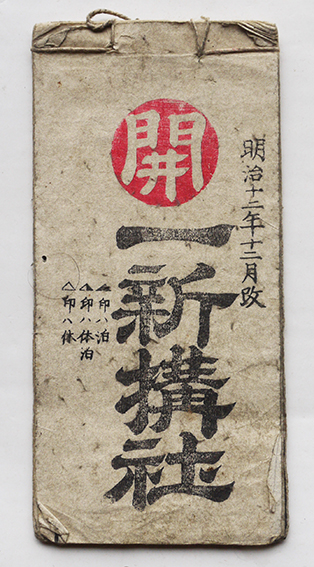 明治十二年十二月改
開
一新搆社
▲印ハ泊
◭印ハ休泊
△印ハ休